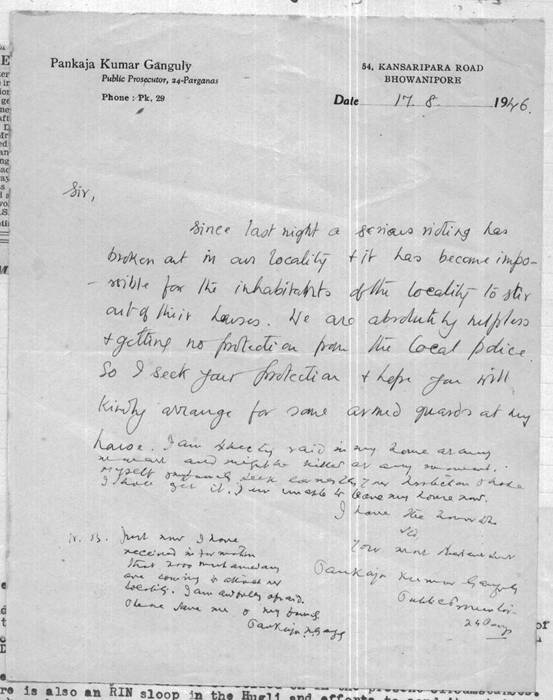 Pankaja Kumar Ganguly
Public Prosecutor, 24-Parganas
Phone : Pk, 29
54, KANSARIPARA ROAD
BHOWANIPORE
Date 17. 8. 1946.
Sir,
Since last night a serious rioting has
broken out in our locality & it has become impo-
-ssible for the inhabitants of the locality to stir
out of their houses. We are absolutely helpless
& getting no protection from the local police.
So I seek your protection & hope you will
kindly arrange for some armed guards at my
house. I am expecting raid in my house at any
moment and might be killed at any moment.
Myself seek earnestly your protection & hope
I shall get it. I am unable to leave my house now.
I have the honour
Your most
Pankaja Kumar Ganguly
Public Prosecutor
24 Pargs
N. B. Just now I have
received information
that 2000
are coming to attack our
locality. I am awfully afraid.
Please save me & my family
Pankaja K Ganguly
re is also an RIN sloop in the Hugli and efforts to